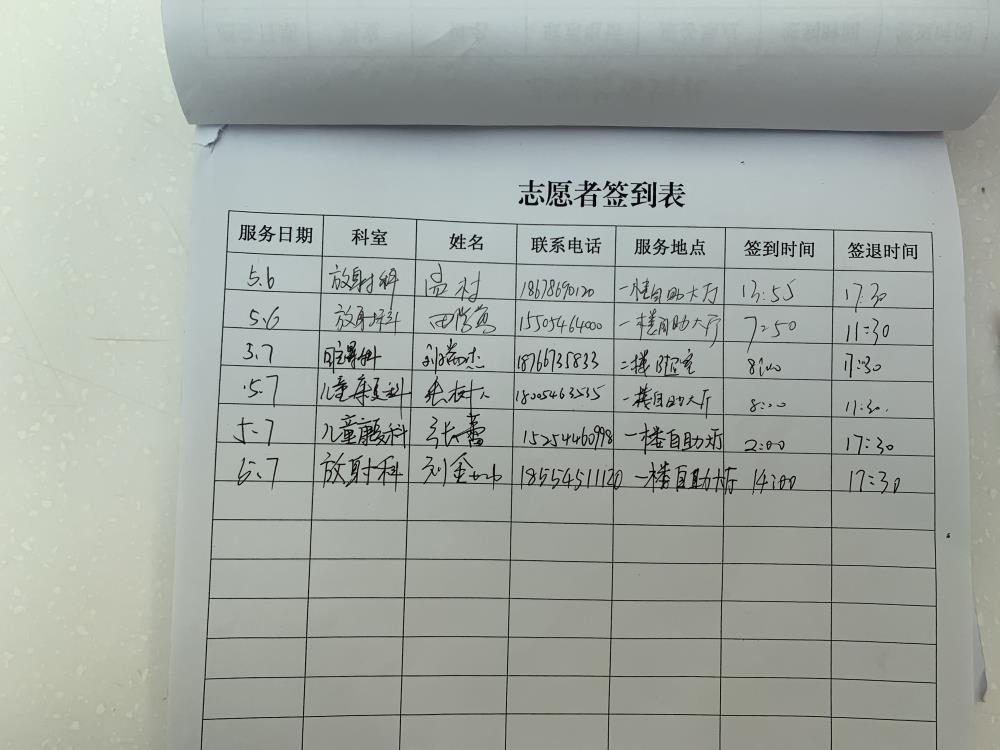 志愿者签到表
服务日期 科室 姓名 联系电话 服务地点 签到时间 签退时间
5.6 放射科 孟村 18678690120 一楼自助大厅 13:55 17:30
5.6 放射科 田 15505464000 一楼自助大厅 7:50 11:30
5.7 科 刘 杰 18766735833 二楼 室 8:00 17:30
5.7 儿童康复科 张树人 18005463535 一楼自助大厅 8:00 11:30.
5.7 儿童康复科 张蕾 15254460998 一楼自助大厅 2:00 17:30
5.7 放射科 刘金 18554511120 一楼自助大厅 14:00 17:30